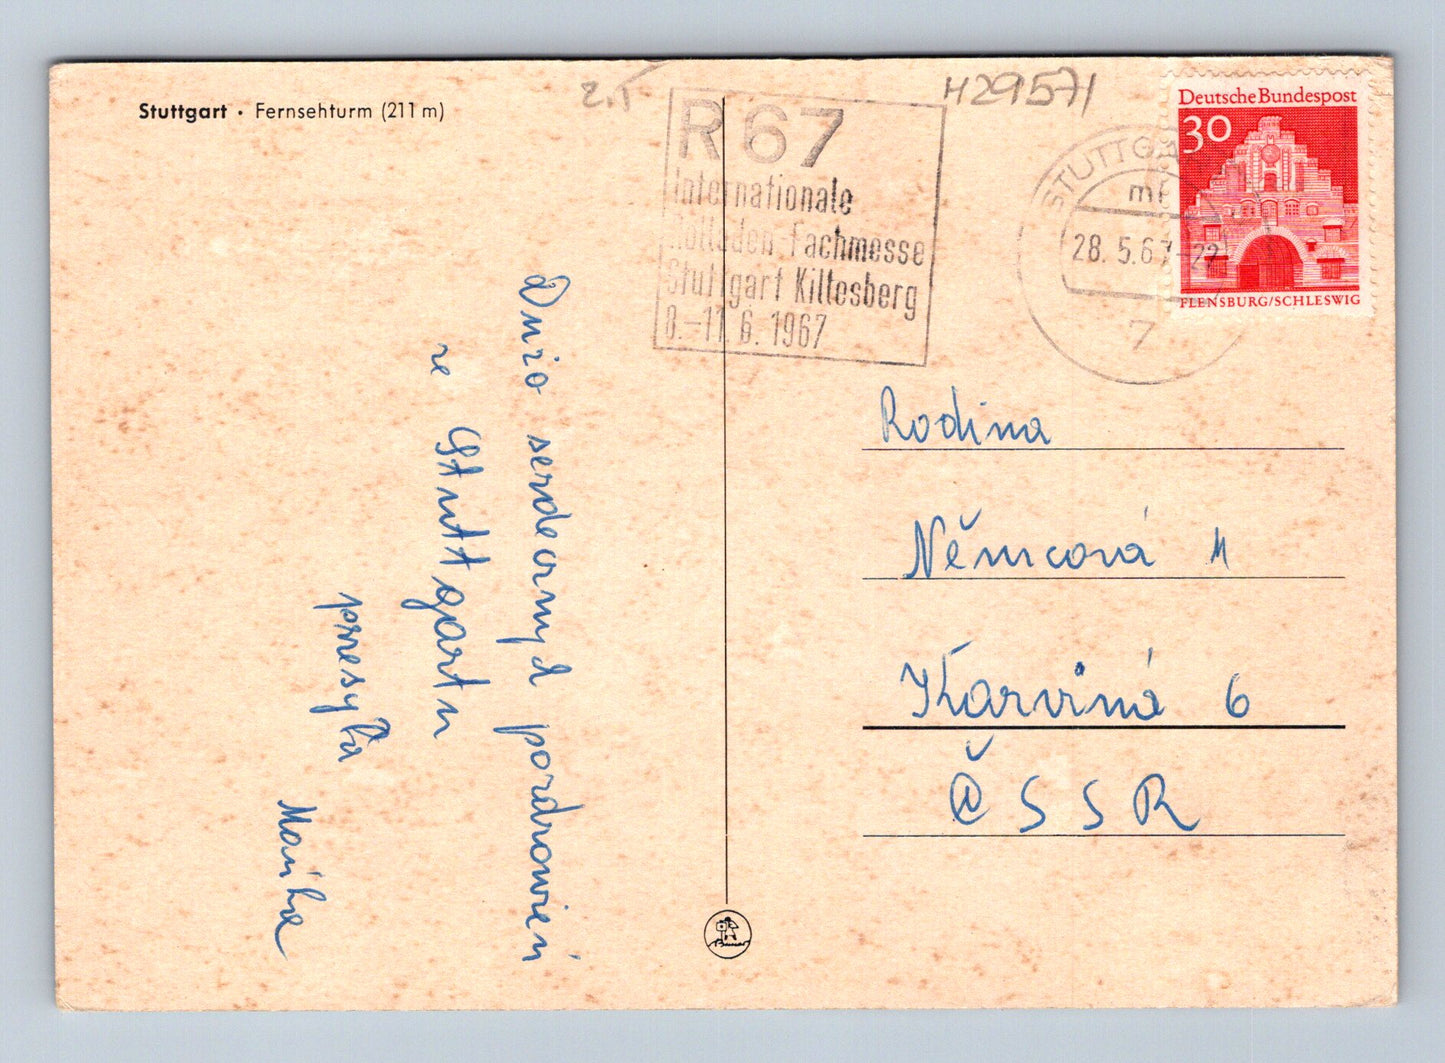 Stuttgart · Fernsehturm (211 m)
H29571
R 67
Internationale
Rolladen-Fachmesse
Stuttgart Killesberg
8.-11. 6. 1967
STUTTGA
28. 5. 67-22
7
Deutsche Bundespost
30
FLENSBURG/SCHLESWIG
Dużo serdecznych pozdrowień
ze Stuttgartu
przesyła
Marika
Rodina
Němcová M
Karviná 6
ČSSR